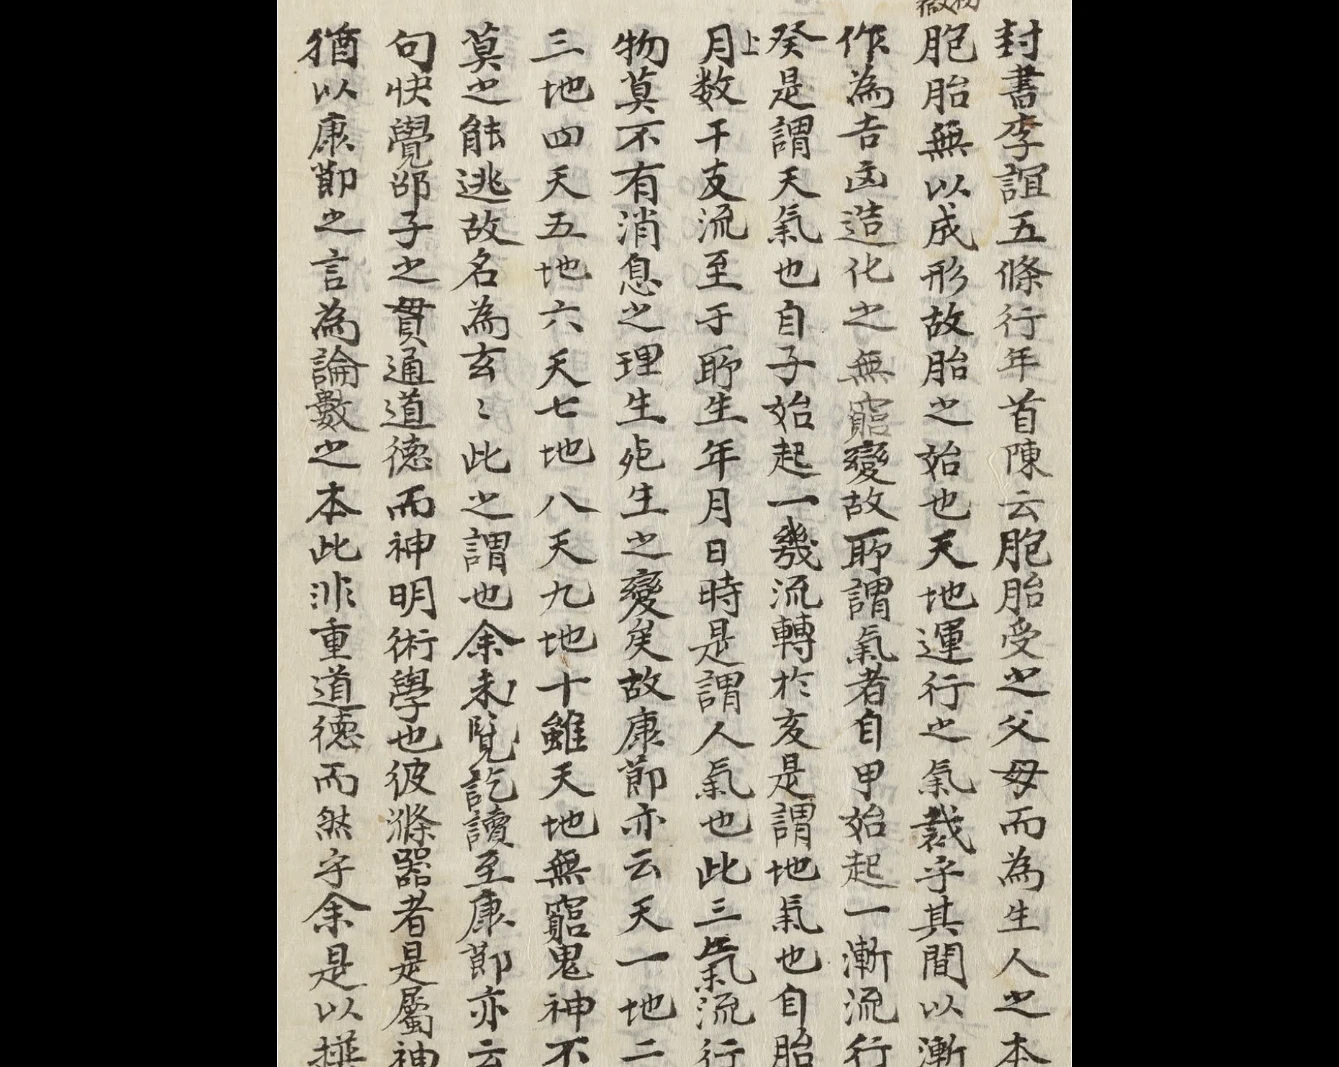 封書李誼五條行年首陳云胞胎受之父母而為生人之本
胞胎無以成形故胎之始也天地運行之氣裁乎其間以漸
作為吉凶造化之無窮變故所謂氣者自甲始起一漸流行
癸是謂天氣也自子始起一幾流轉於亥是謂地氣也自胎
月上数干支流至于所生年月日時是謂人氣也此三氣流行
物莫不有消息之理生死生之變矣故康節亦云天一地二
三地四天五地六天七地八天九地十雖天地無窮鬼神不
莫之能逃故名為玄〻此之謂也余未覧訖讀至康節亦云
句快覺邵子之貫通道德而神明術學也彼滌器者是屬神
猶以康節之言為論數之本此非重道德而然乎余是以